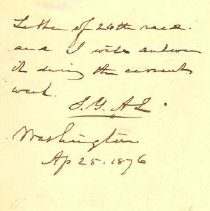 Letter of 20th recd.
and I will answer
it during the current
week.
Washington
Ap 25. 1876